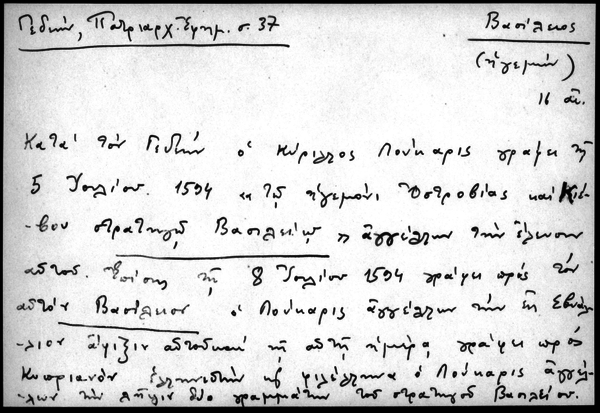 Γεδεών, Πατριαρχ. Εφημ. σ. 37
Βασίλειος
(ηγεμών)
16 αι.
Κατά τον Γεδεών ο Κύριλλος Λούκαρις γράφει τη
5 Ιουλίου 1594 "τω ηγεμόνι Οστροβίας και Κιέ-
-βου στρατηγώ Βασιλείω" αγγέλλων την έλευσιν
αυτού. Επίσης τη 8 Ιουλίου 1594 γράφει προς τον
αυτόν Βασίλειον ο Λούκαρις αγγέλλων την εις
-λιον άφιξιν αυτού και τη αυτή ημέρα γράφει προς
Κυπριανόν ο Λούκαρις αγγέλ-
-λων την λήψιν δύο γραμμάτων του στρατηγού Βασιλείου.